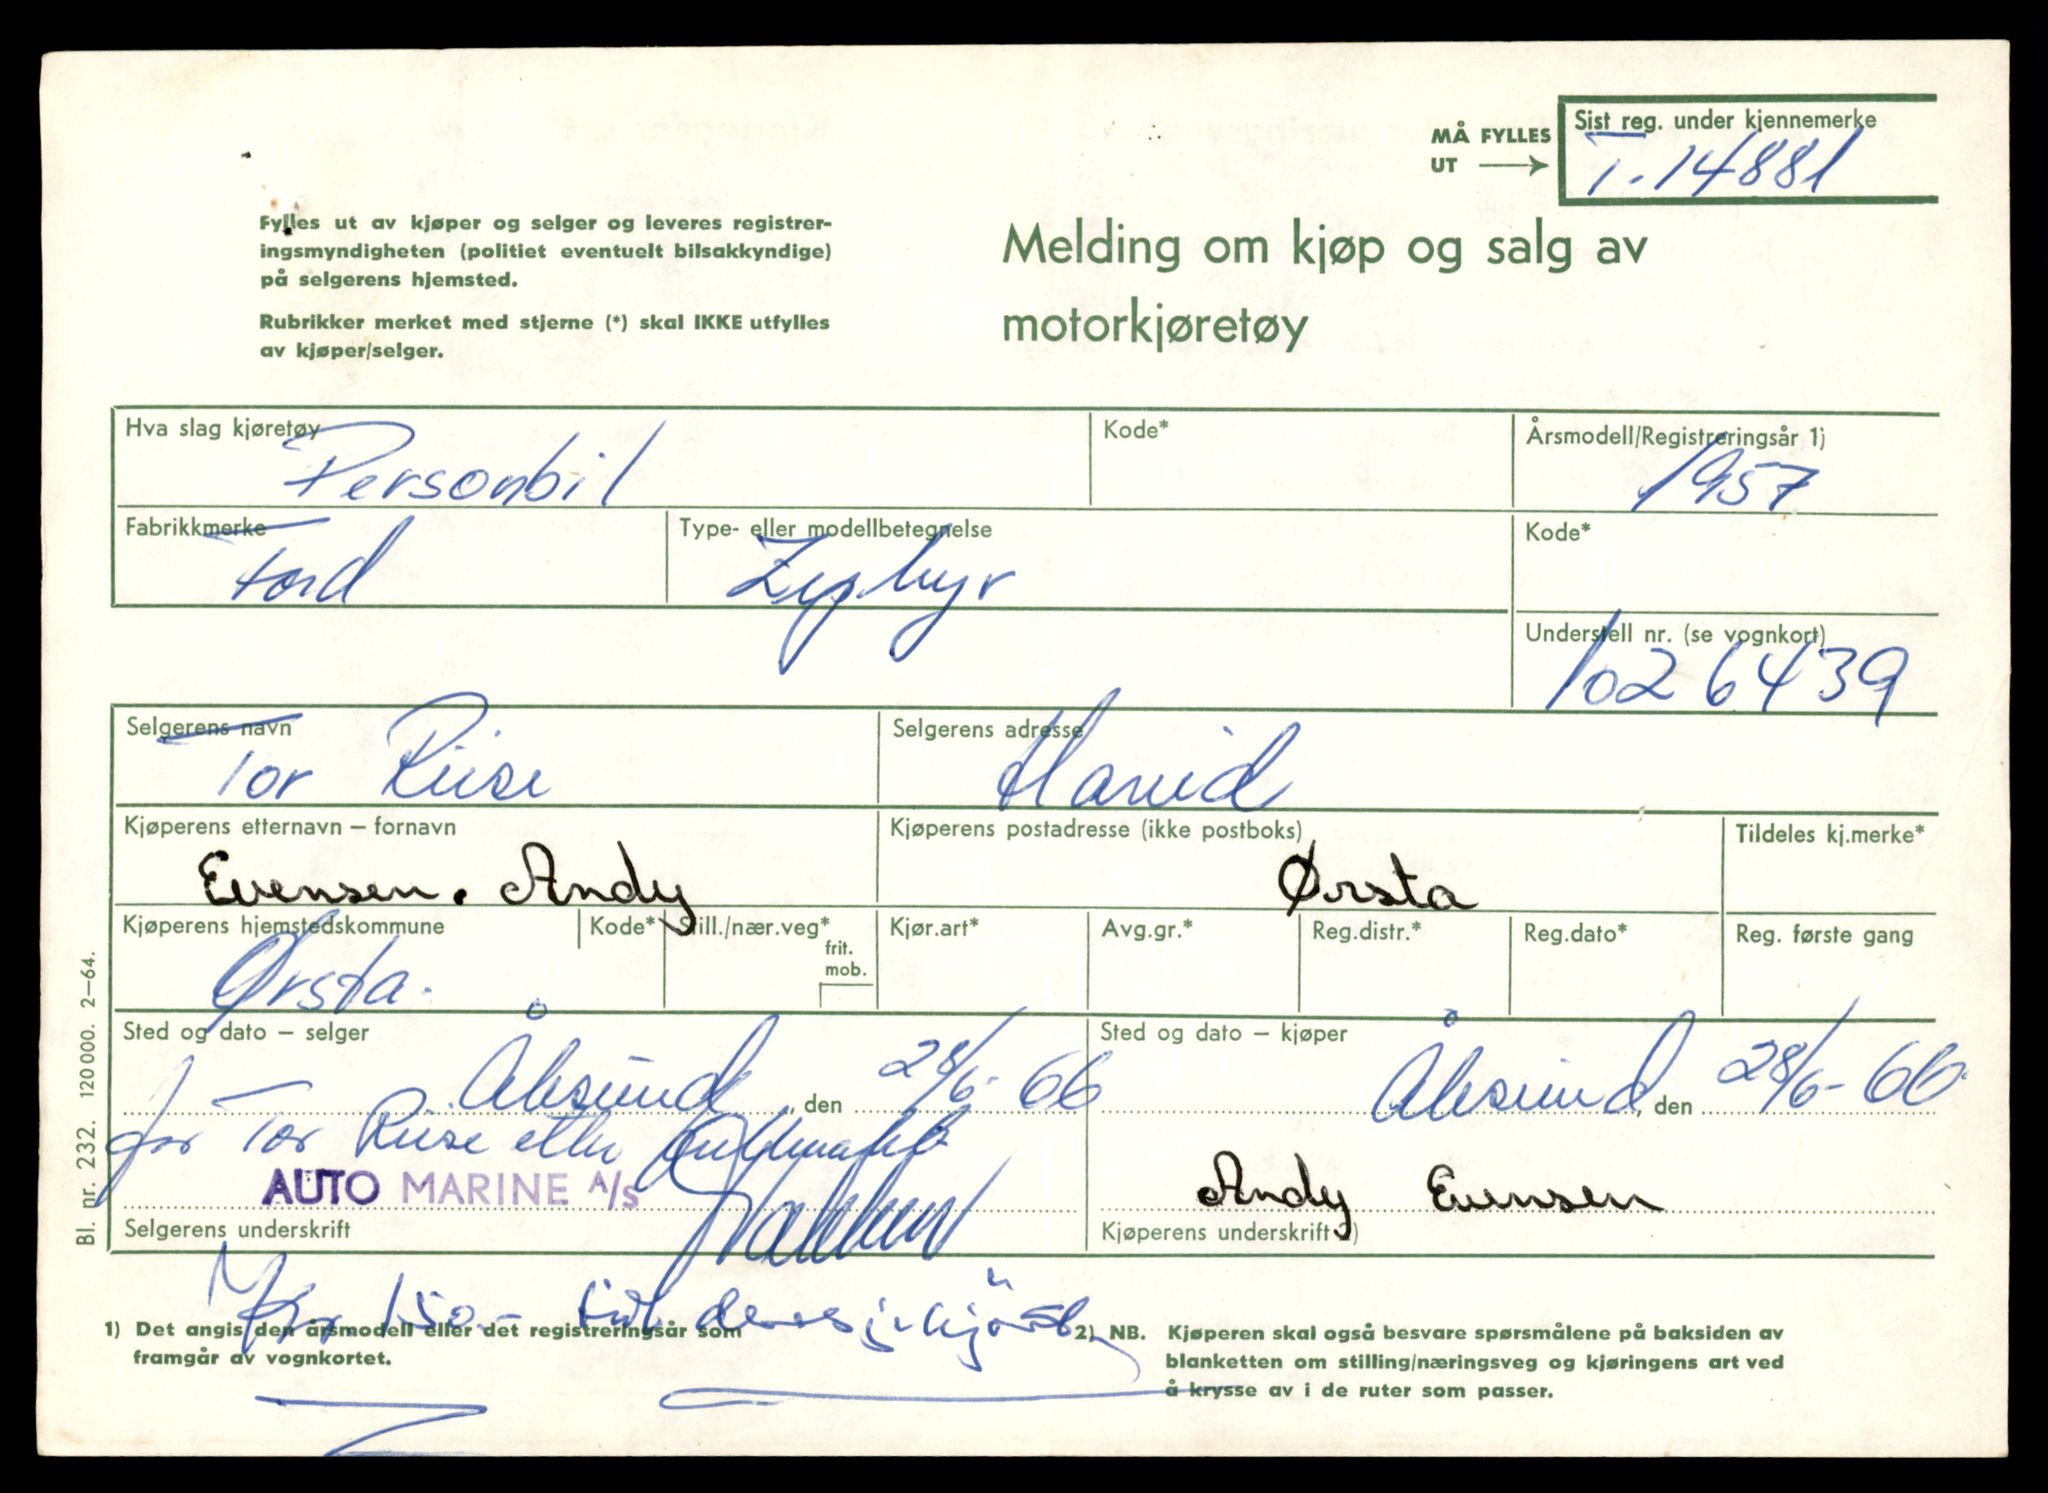 MÅ FYLLES
UT
Sist reg. under kjennemerke
T-14881
Fylles ut av kjøper og selger og leveres registrer-
ingsmyndigheten (politiet eventuelt bilsakkyndige)
på selgerens hjemsted.
Rubrikker merket med stjerne (*) skal IKKE utfylles
av kjøper/selger.
Melding om kjøp og salg av
motorkjøretøy
Hva slag kjøretøy
Personbil
Kode*
Årsmodell/Registreringsår 1)
1957
Fabrikkmerke
Ford
Type- eller modellbetegnelse
Zephyr
Kode*
Understell nr. (se vognkort)
1026439
Selgerens navn
Tor Riise
Selgerens adresse
Hareid
Kjøperens etternavn – fornavn
Evensen. Andy
Kjøperens postadresse (ikke postboks)
Ørsta
Tildeles kj.merke*
Kjøperens hjemstedskommune
Ørsta.
Kode*
Still./nær.veg*
frit.
mob.
Kjør.art*
Avg.gr.*
Reg.distr.*
Reg.dato*
Reg. første gang
Sted og dato – selger
Ålesund, den 28/6-66
for Tor Riise etter fullmakt
AUTO MARINE A/S
Selgerens underskrift
Sted og dato – kjøper
Ålesund, den 28/6-66.
Andy Evensen
Kjøperens underskrift 2)
kr 150.-
1) Det angis den årsmodell eller det registreringsår som
framgår av vognkortet.
2) NB. Kjøperen skal også besvare spørsmålene på baksiden av
blanketten om stilling/næringsveg og kjøringens art ved
å krysse av i de ruter som passer.
Bl. nr. 232. 120 000. 2–64.